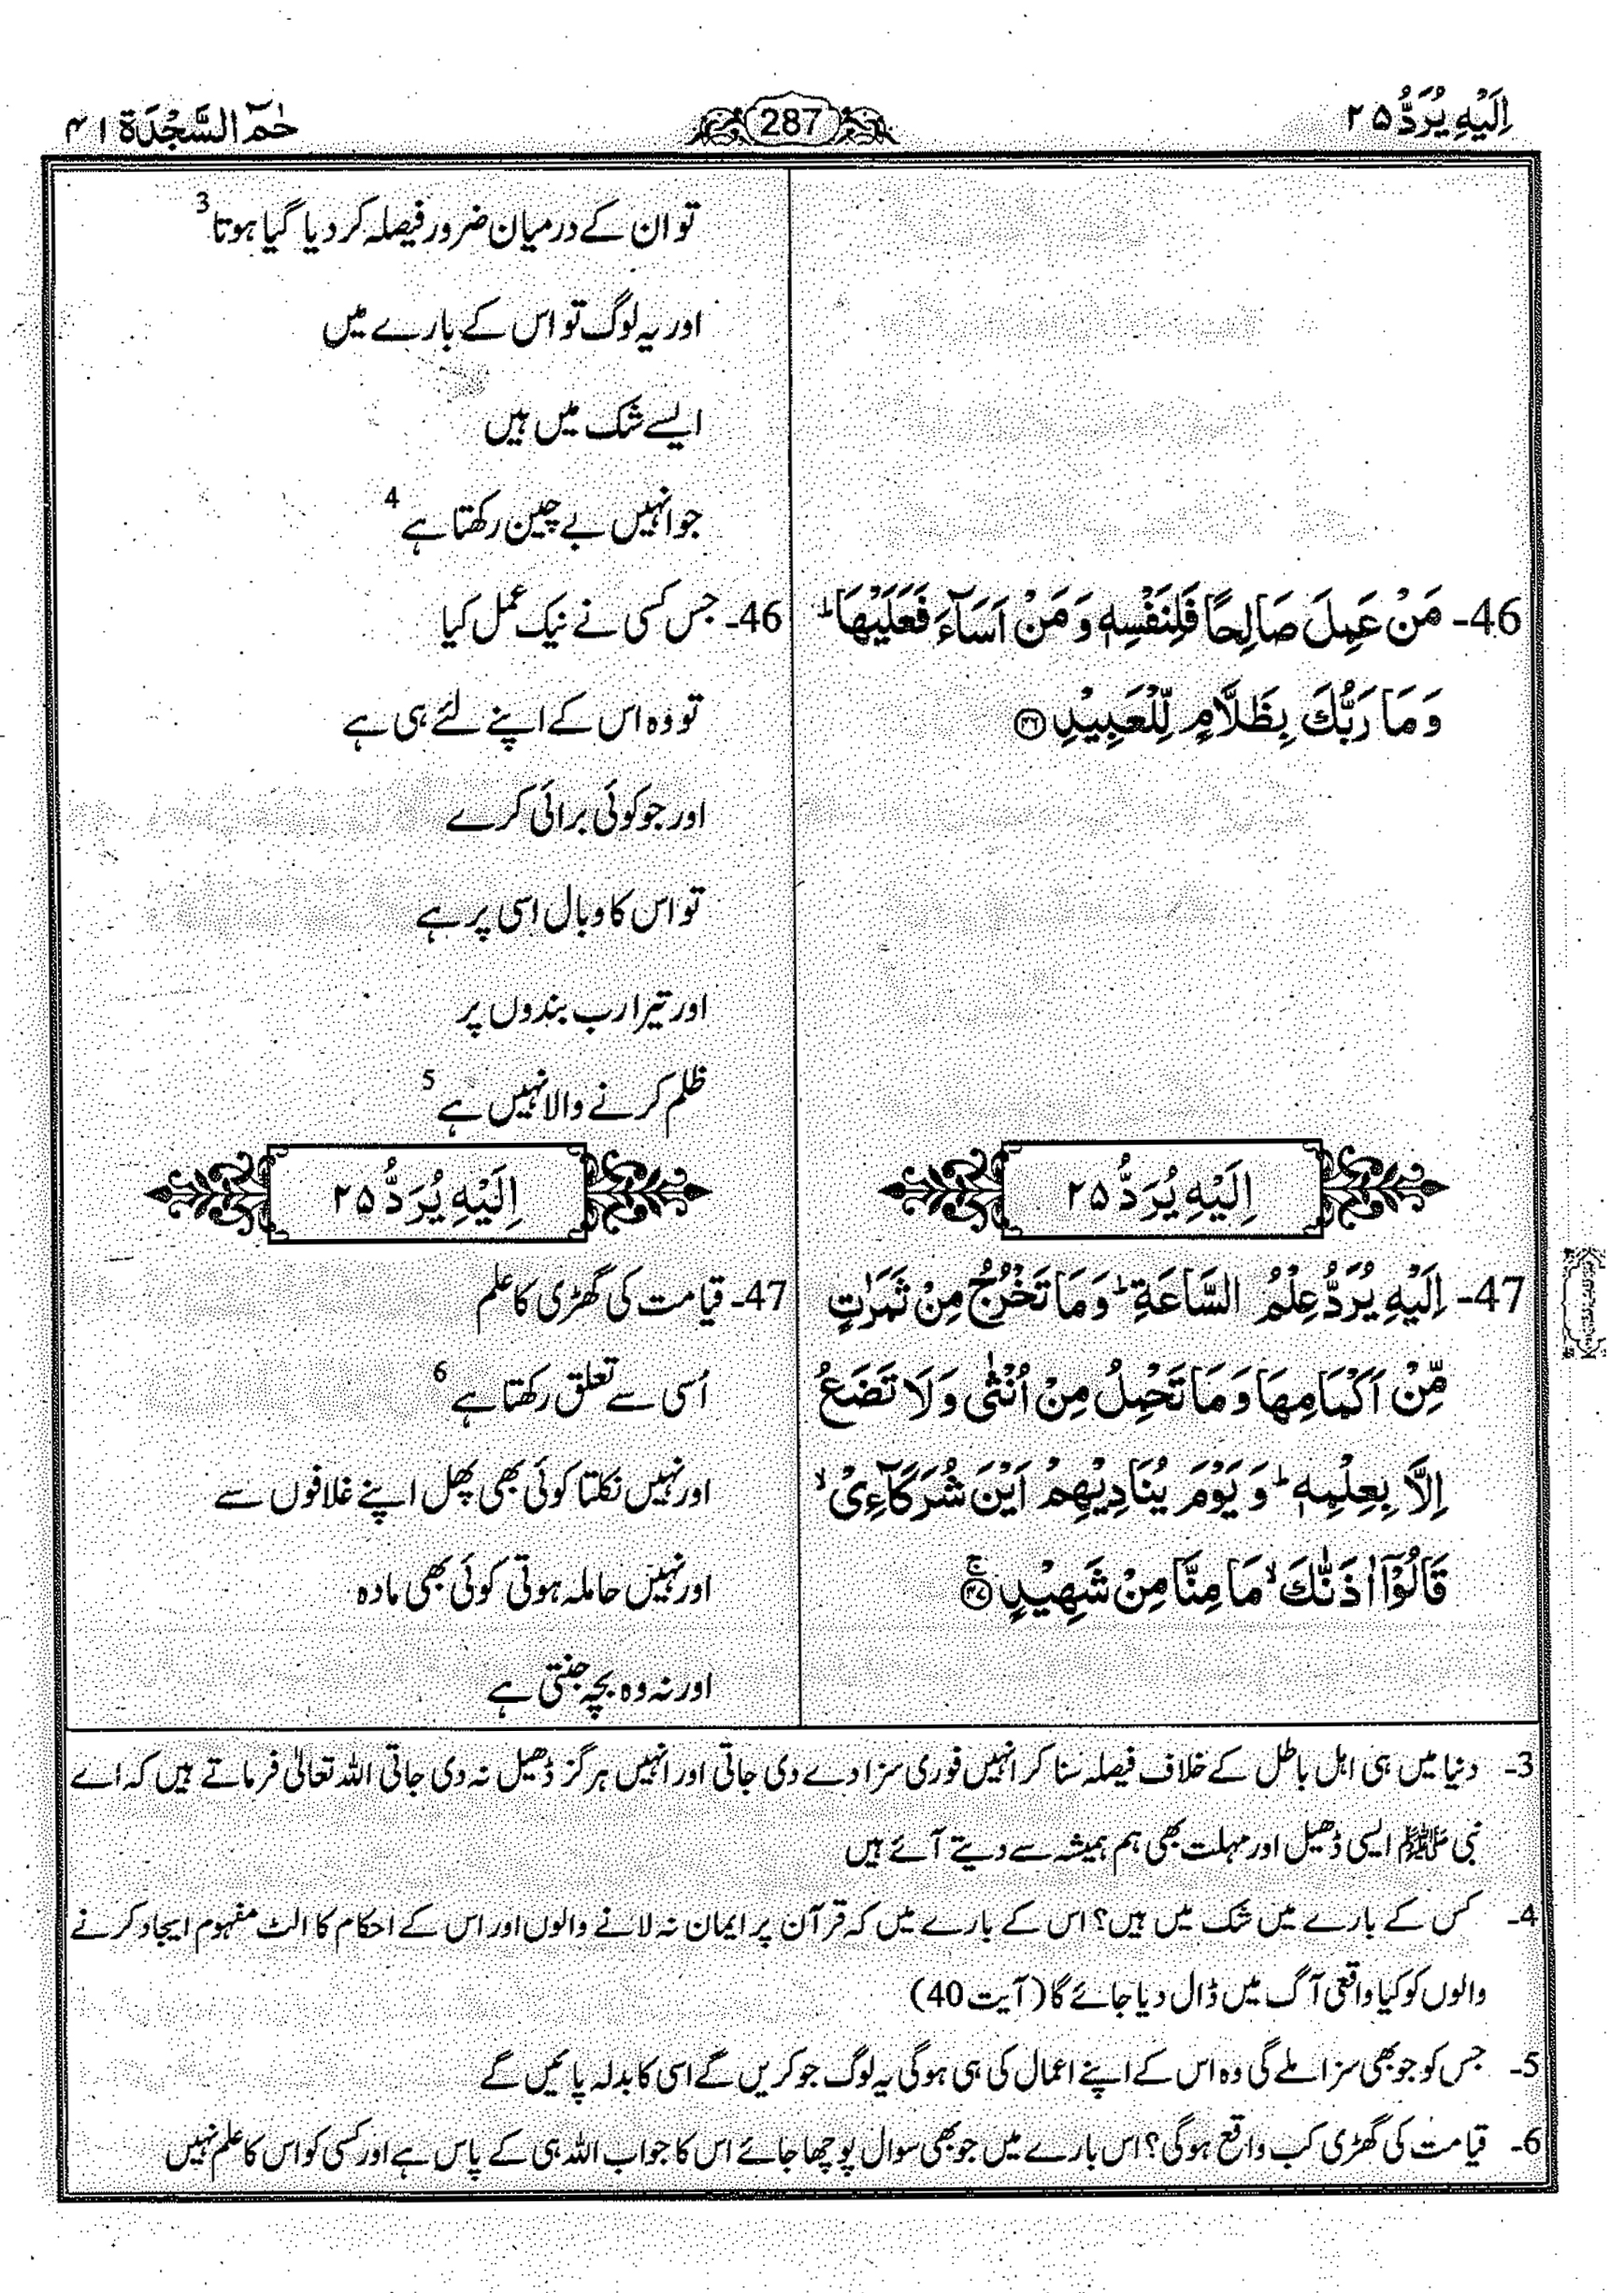 اِلَيْهِ يُرَدُّ ۲۵
287
حٰمٓ السَّجْدَة ۴۱
تو ان کے درمیان ضرور فیصلہ کر دیا گیا ہوتا 3
اور یہ لوگ تو اس کے بارے میں
ایسے شک میں ہیں
جو انہیں بے چین رکھتا ہے 4
46- مَنْ عَمِلَ صَالِحًا فَلِنَفْسِهٖ وَ مَنْ اَسَآءَ فَعَلَيْهَا ؕ
وَ مَا رَبُّكَ بِظَلَّامٍ لِّلْعَبِيْدِ ۴۶
46- جس کسی نے نیک عمل کیا
تو وہ اس کے اپنے لئے ہی ہے
اور جو کوئی برائی کرے
تو اس کا وبال اسی پر ہے
اور تیرا رب بندوں پر
ظلم کرنے والا نہیں ہے 5
اِلَيْهِ يُرَدُّ ۲۵
اِلَيْهِ يُرَدُّ ۲۵
47- اِلَيْهِ يُرَدُّ عِلْمُ السَّاعَةِ ؕ وَ مَا تَخْرُجُ مِنْ ثَمَرٰتٍ
مِّنْ اَكْمَامِهَا وَ مَا تَحْمِلُ مِنْ اُنْثٰى وَ لَا تَضَعُ
اِلَّا بِعِلْمِهٖ ؕ وَ يَوْمَ يُنَادِيْهِمْ اَيْنَ شُرَكَآءِىْ ۙ
قَالُوْۤا اٰذَنّٰكَ ۙ مَا مِنَّا مِنْ شَهِيْدٍ ۚ ۴۷
47- قیامت کی گھڑی کا علم
اُسی سے تعلق رکھتا ہے 6
اور نہیں نکلتا کوئی بھی پھل اپنے غلافوں سے
اور نہیں حاملہ ہوتی کوئی بھی مادہ
اور نہ وہ بچہ جنتی ہے
3- دنیا میں ہی اہل باطل کے خلاف فیصلہ سنا کر انہیں فوری سزا دے دی جاتی اور انہیں ہرگز ڈھیل نہ دی جاتی اللہ تعالیٰ فرماتے ہیں کہ اے
نبی ﷺ ایسی ڈھیل اور مہلت بھی ہم ہمیشہ سے دیتے آئے ہیں
4- کس کے بارے میں شک میں ہیں؟ اس کے بارے میں کہ قرآن پر ایمان نہ لانے والوں اور اس کے احکام کا الٹ مفہوم ایجاد کرنے
والوں کو کیا واقعی آگ میں ڈال دیا جائے گا (آیت 40)
5- جس کو جو بھی سزا ملے گی وہ اس کے اپنے اعمال کی ہی ہوگی یہ لوگ جو کریں گے اسی کا بدلہ پائیں گے
6- قیامت کی گھڑی کب واقع ہوگی؟ اس بارے میں جو بھی سوال پوچھا جائے اس کا جواب اللہ ہی کے پاس ہے اور کسی کو اس کا علم نہیں